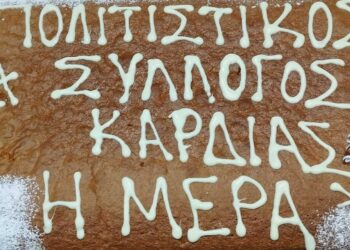 ΠΟΛΙΤΙΣΤΙΚΟΣ
ΣΥΛΛΟΓΟΣ
ΚΑΡΔΙΑΣ
Η ΜΕΡΑ